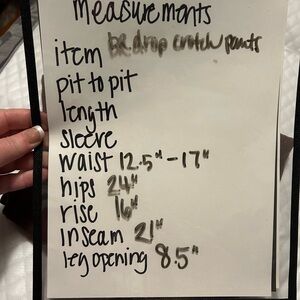 measurements
item drop crotch pants
pit to pit
length
sleeve
waist 12.5" - 17"
hips 24"
rise 16"
inseam 21"
leg opening 8.5"